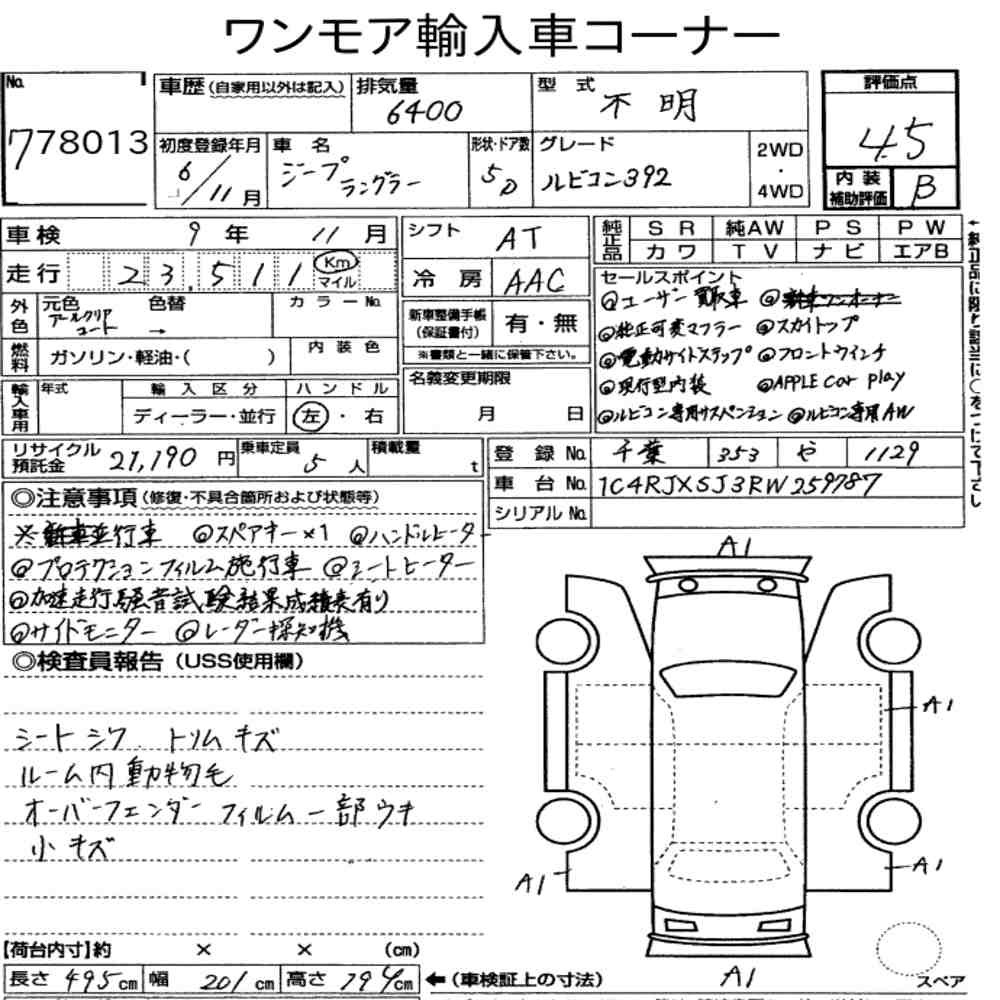 ワンモア輸入車コーナー
No. 778013
車歴(自家用以外は記入) 排気量 6400 型式 不明 評価点 4.5
初度登録年月 6/11月 車名 ジープ ラングラー 形状・ドア数 5D グレード ルビコン392 2WD・4WD
内装補助評価 B
車検 9年 11月
走行 23,511 Km マイル
シフト AT
冷房 AAC
純正品 SR 純AW PS PW
カワ TV ナビ エアB
外色 元色 アールクリアコート 色替 → カラーNo.
燃料 ガソリン・軽油・( ) 内装色
新車整備手帳(保証書付) 有・無
※書類と一緒に保管下さい。
セールスポイント
◎ユーザー買取車 ◎新車ワンオーナー
◎純正可変マフラー ◎スカイトップ
◎電動サイドステップ ◎フロントウインチ
◎現行型内装 ◎APPLE Car play
◎ルビコン専用サスペンション ◎ルビコン専用AW
輸入車用 年式 輸入区分 ディーラー・並行 ハンドル 左・右
名義変更期限 月 日
リサイクル預託金 21,190円 乗車定員 5人 積載量 t
登録No. 千葉 353 や 1129
車台No. 1C4RJXSJ3RW259787
シリアルNo.
◎注意事項(修復・不具合箇所および状態等)
※新車並行車 ◎スペアキー×1 ◎ハンドルヒーター
◎プロテクションフィルム施行車 ◎シートヒーター
◎加速走行騒音試験結果成績表有り
◎サイドモニター ◎レーダー探知機
◎検査員報告(USS使用欄)
シートシワ トリムキズ
ルーム内動物毛
オーバーフェンダー フィルム一部ウキ
小キズ
A1
A1
A1
A1
A1
スペア
【荷台内寸】約 × × (cm)
長さ 495cm 幅 201cm 高さ 194cm ←(車検証上の寸法)